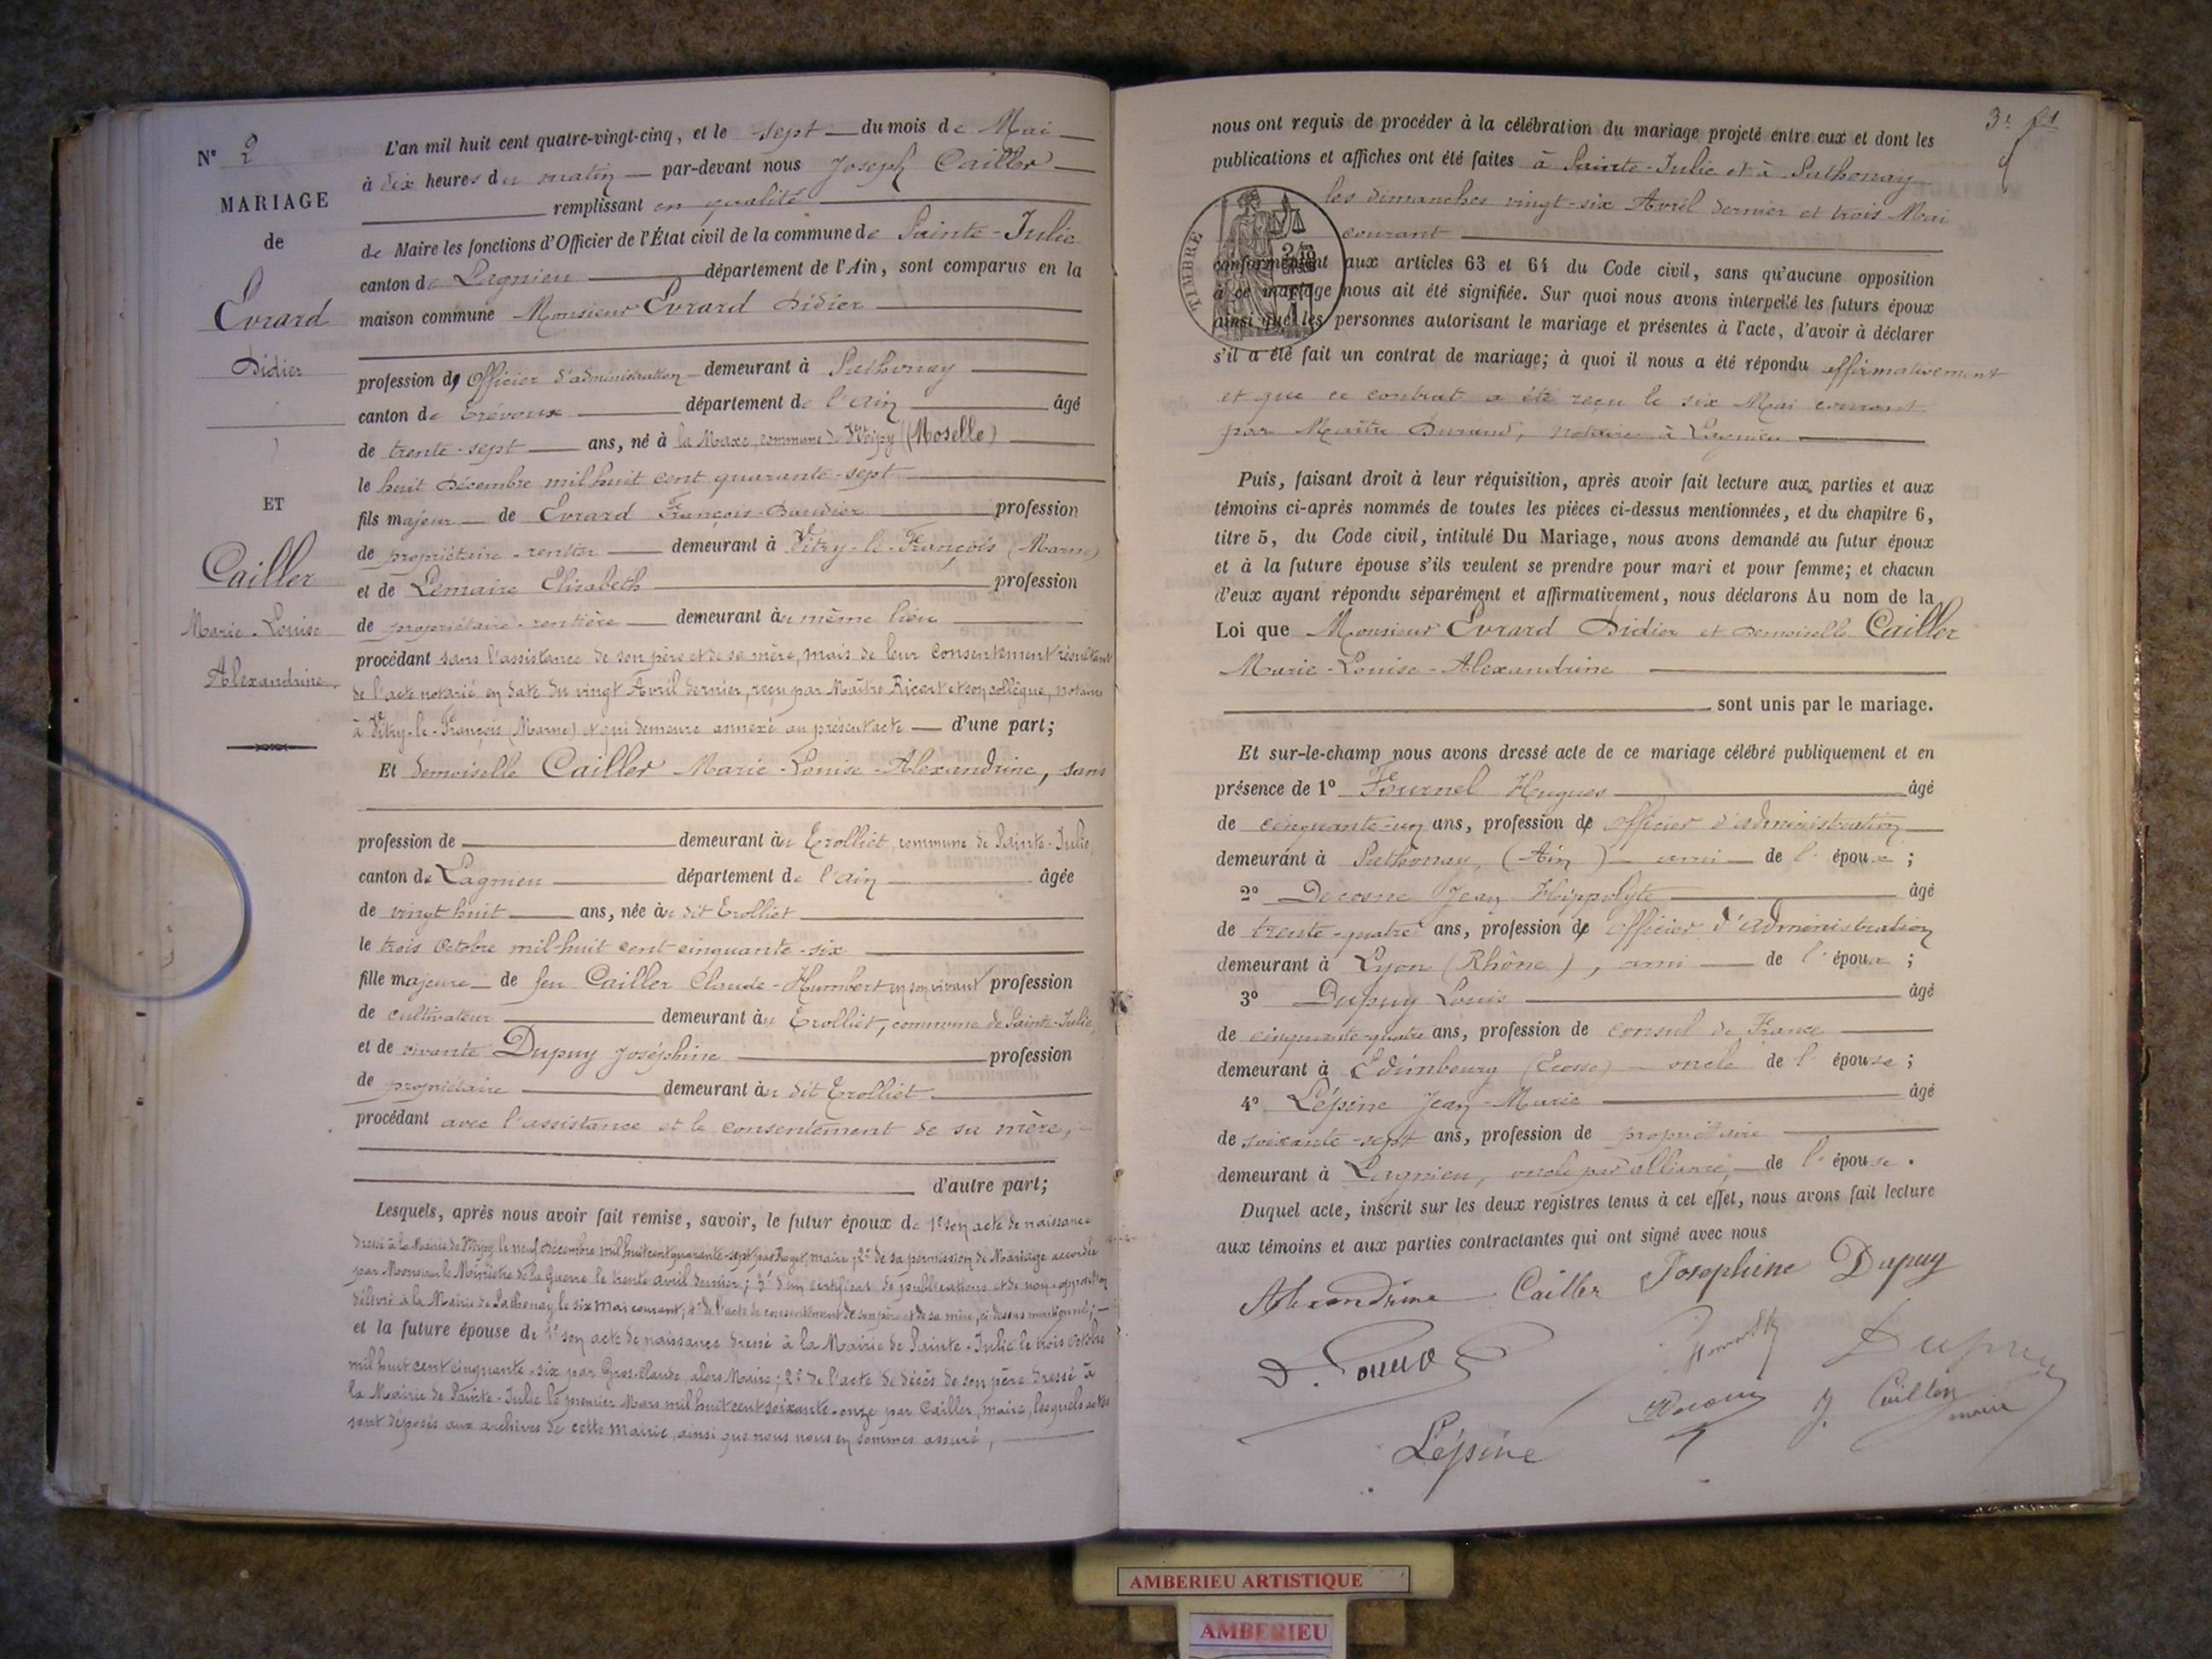 N° 2
MARIAGE
de
Evrard
Didier
ET
Cailler
Marie-Louise
Alexandrine.
L'an mil huit cent quatre-vingt-cinq, et le sept du mois de Mai
à dix heures du matin par-devant nous Joseph Cailler
remplissant en qualité
de Maire les fonctions d'Officier de l'État civil de la commune de Sainte-Julie
canton de Lagnieu département de l'Ain, sont comparus en la
maison commune Monsieur Evrard Didier
profession d' Officier d'administration demeurant à Sathonay
canton de Trévoux département de l'Ain âgé
de trente-sept ans, né à la Maxe, commune de Woippy (Moselle)
le huit Décembre mil huit cent quarante-sept
fils majeur de Evrard François-Baudier profession
de propriétaire-rentier demeurant à Vitry-le-François (Marne)
et de Lemaire Elisabeth profession
de propriétaire-rentière demeurant au même lieu
procédant sans l'assistance de son père et de sa mère, mais de leur consentement résultant
de l'acte notarié en date du vingt Avril dernier, reçu par Maître Ricart et son collègue, notaires
à Vitry-le-François (Marne) et qui demeure annexé au présent acte d'une part;
Et demoiselle Cailler Marie-Louise-Alexandrine, sans
profession de demeurant au Trolliet, commune de Sainte-Julie,
canton de Lagnieu département de l'Ain âgée
de vingt huit ans, née au dit Trolliet
le trois Octobre mil-huit cent cinquante-six
fille majeure de feu Cailler Claude-Humbert en son vivant profession
de cultivateur demeurant au Trolliet, commune de Sainte-Julie,
et de vivante Dupuy Joséphine profession
de propriétaire demeurant au dit Trolliet.
procédant avec l'assistance et le consentement de sa mère,
d'autre part;
Lesquels, après nous avoir fait remise, savoir, le futur époux de 1° son acte de naissance
dressé à la Mairie de Woippy le neuf Décembre mil huit cent quarante-sept par Roget, maire; 2° de sa permission de Mariage accordée
par Monsieur le Ministre de la Guerre le trente avril dernier; 3° d'un certificat de publications et de non opposition
délivré à la Mairie de Sathonay le six Mai courant; 4° de l'acte de consentement de son père et de sa mère, ci-dessus mentionné;
et la future épouse de 1° son acte de naissance dressé à la Mairie de Sainte-Julie le trois Octobre
mil huit cent cinquante-six par Gros-Claude, alors Maire; 2° de l'acte de décès de son père dressé à
la Mairie de Sainte-Julie le premier Mars mil huit cent soixante-onze par Cailler, maire, lesquels actes
sont déposés aux archives de cette Mairie, ainsi que nous nous en sommes assuré,
nous ont requis de procéder à la célébration du mariage projeté entre eux et dont les
publications et affiches ont été faites à Sainte-Julie et à Sathonay
les dimanches vingt-six Avril dernier et trois Mai
courant
TIMBRE
conformément aux articles 63 et 64 du Code civil, sans qu'aucune opposition
à ce mariage nous ait été signifiée. Sur quoi nous avons interpellé les futurs époux
ainsi que les personnes autorisant le mariage et présentes à l'acte, d'avoir à déclarer
s'il a été fait un contrat de mariage; à quoi il nous a été répondu affirmativement
et que ce contrat a été reçu le six Mai courant
par Maître Durand, notaire à Lagnieu
Puis, faisant droit à leur réquisition, après avoir fait lecture aux parties et aux
témoins ci-après nommés de toutes les pièces ci-dessus mentionnées, et du chapitre 6,
titre 5, du Code civil, intitulé Du Mariage, nous avons demandé au futur époux
et à la future épouse s'ils veulent se prendre pour mari et pour femme; et chacun
d'eux ayant répondu séparément et affirmativement, nous déclarons Au nom de la
Loi que Monsieur Evrard Didier et demoiselle Cailler
Marie-Louise-Alexandrine
sont unis par le mariage.
Et sur-le-champ nous avons dressé acte de ce mariage célébré publiquement et en
présence de 1° Fournel Hugues âgé
de cinquante-un ans, profession d' officier d'administration
demeurant à Sathonay, (Ain) ami de l' époux;
2° Decosne Jean Hippolyte âgé
de trente-quatre ans, profession d' officier d'administration
demeurant à Lyon (Rhône), ami de l' époux;
3° Dupuy Louis âgé
de cinquante-quatre ans, profession de consul de France
demeurant à Edimbourg (Ecosse) oncle de l' épouse;
4° Lépine Jean-Marie âgé
de soixante-sept ans, profession de propriétaire
demeurant à Lagnieu, oncle par alliance, de l' épouse.
Duquel acte, inscrit sur les deux registres tenus à cet effet, nous avons fait lecture
aux témoins et aux parties contractantes qui ont signé avec nous
Alexandrine Cailler Josephine Dupuy
Dupuy
J. Cailler
maire
Lépine
AMBERIEU ARTISTIQUE
AMBERIEU